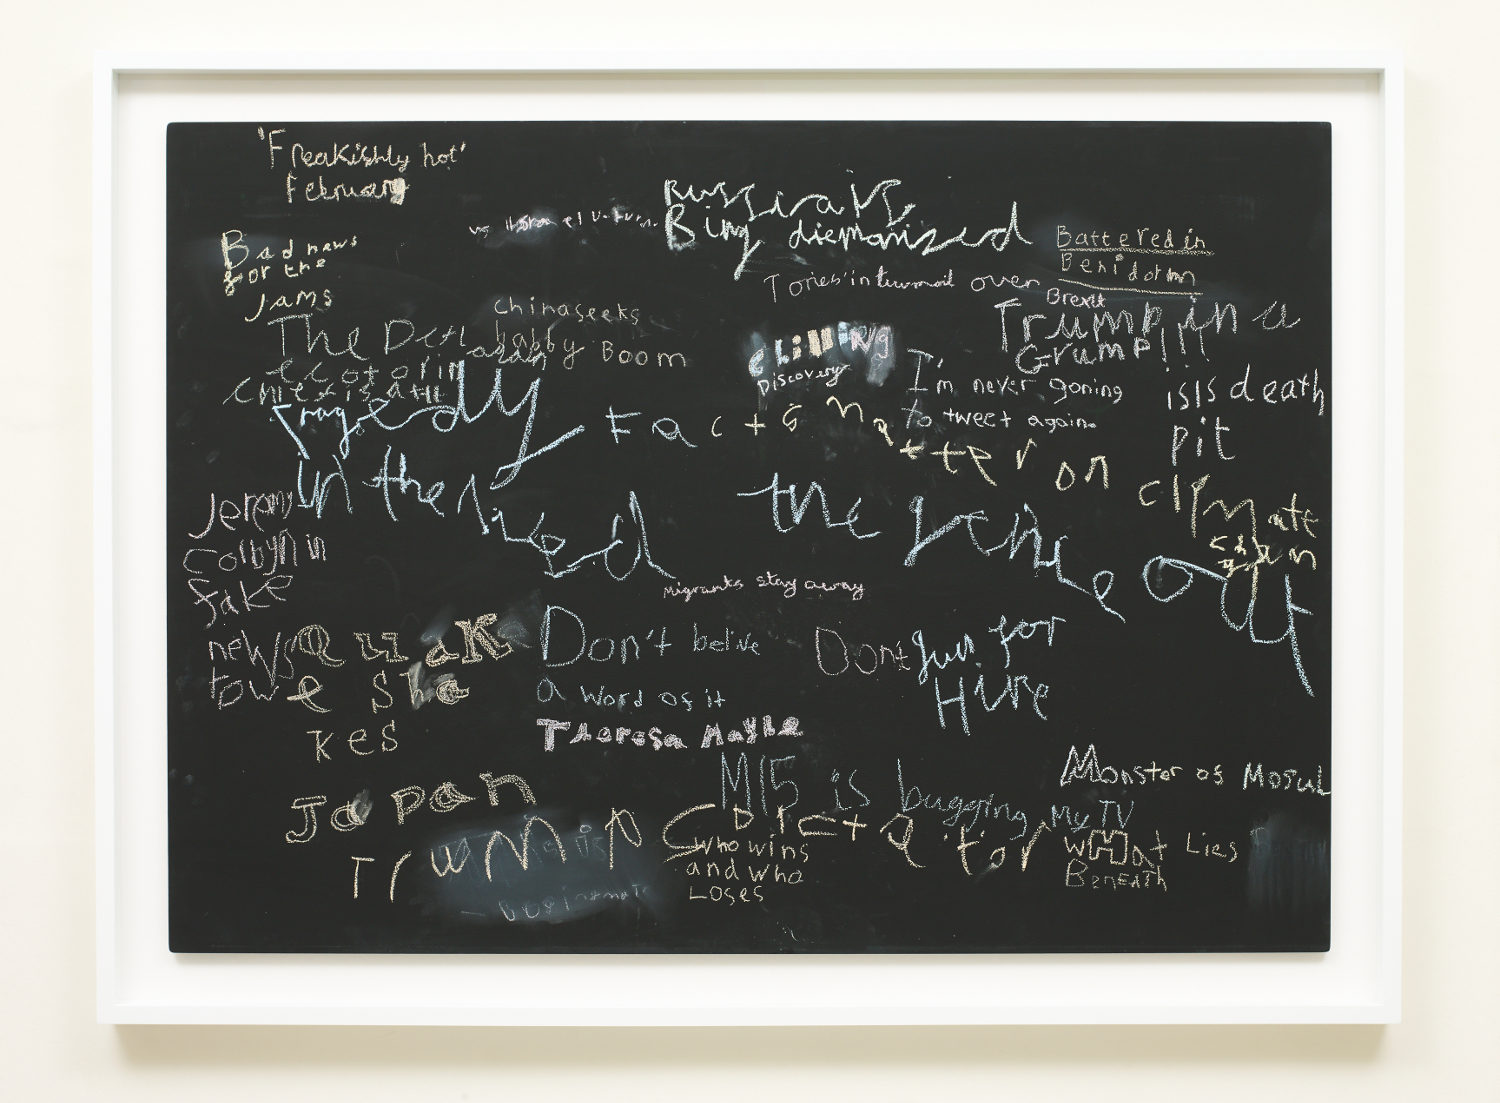 'Freakishly hot'
February
Russia is
Bing diemonised
Bad news
for the
Jams
Battered in
Benidorm
Tories' in turmoil over
Brexit
China seeks
babby Boom
Trump in a
Grump!!!
The
Chilling
Discovery
I'm never goning
to tweet again.
isis death
pit
Tragedy
in the
Facts matter on climate
the genie out
Jeremy
Corbyn in
fake
news
tow
Migrants stay away
Quak
e Sha
kes
Japan
Don't belive
a word of it
Theresa Maybe
Dont
Gun for
Hire
MI5 is bugging My TV
Monster of Mosul
Trump
Dictator
who wins
and who
Loses
What Lies
Beneath